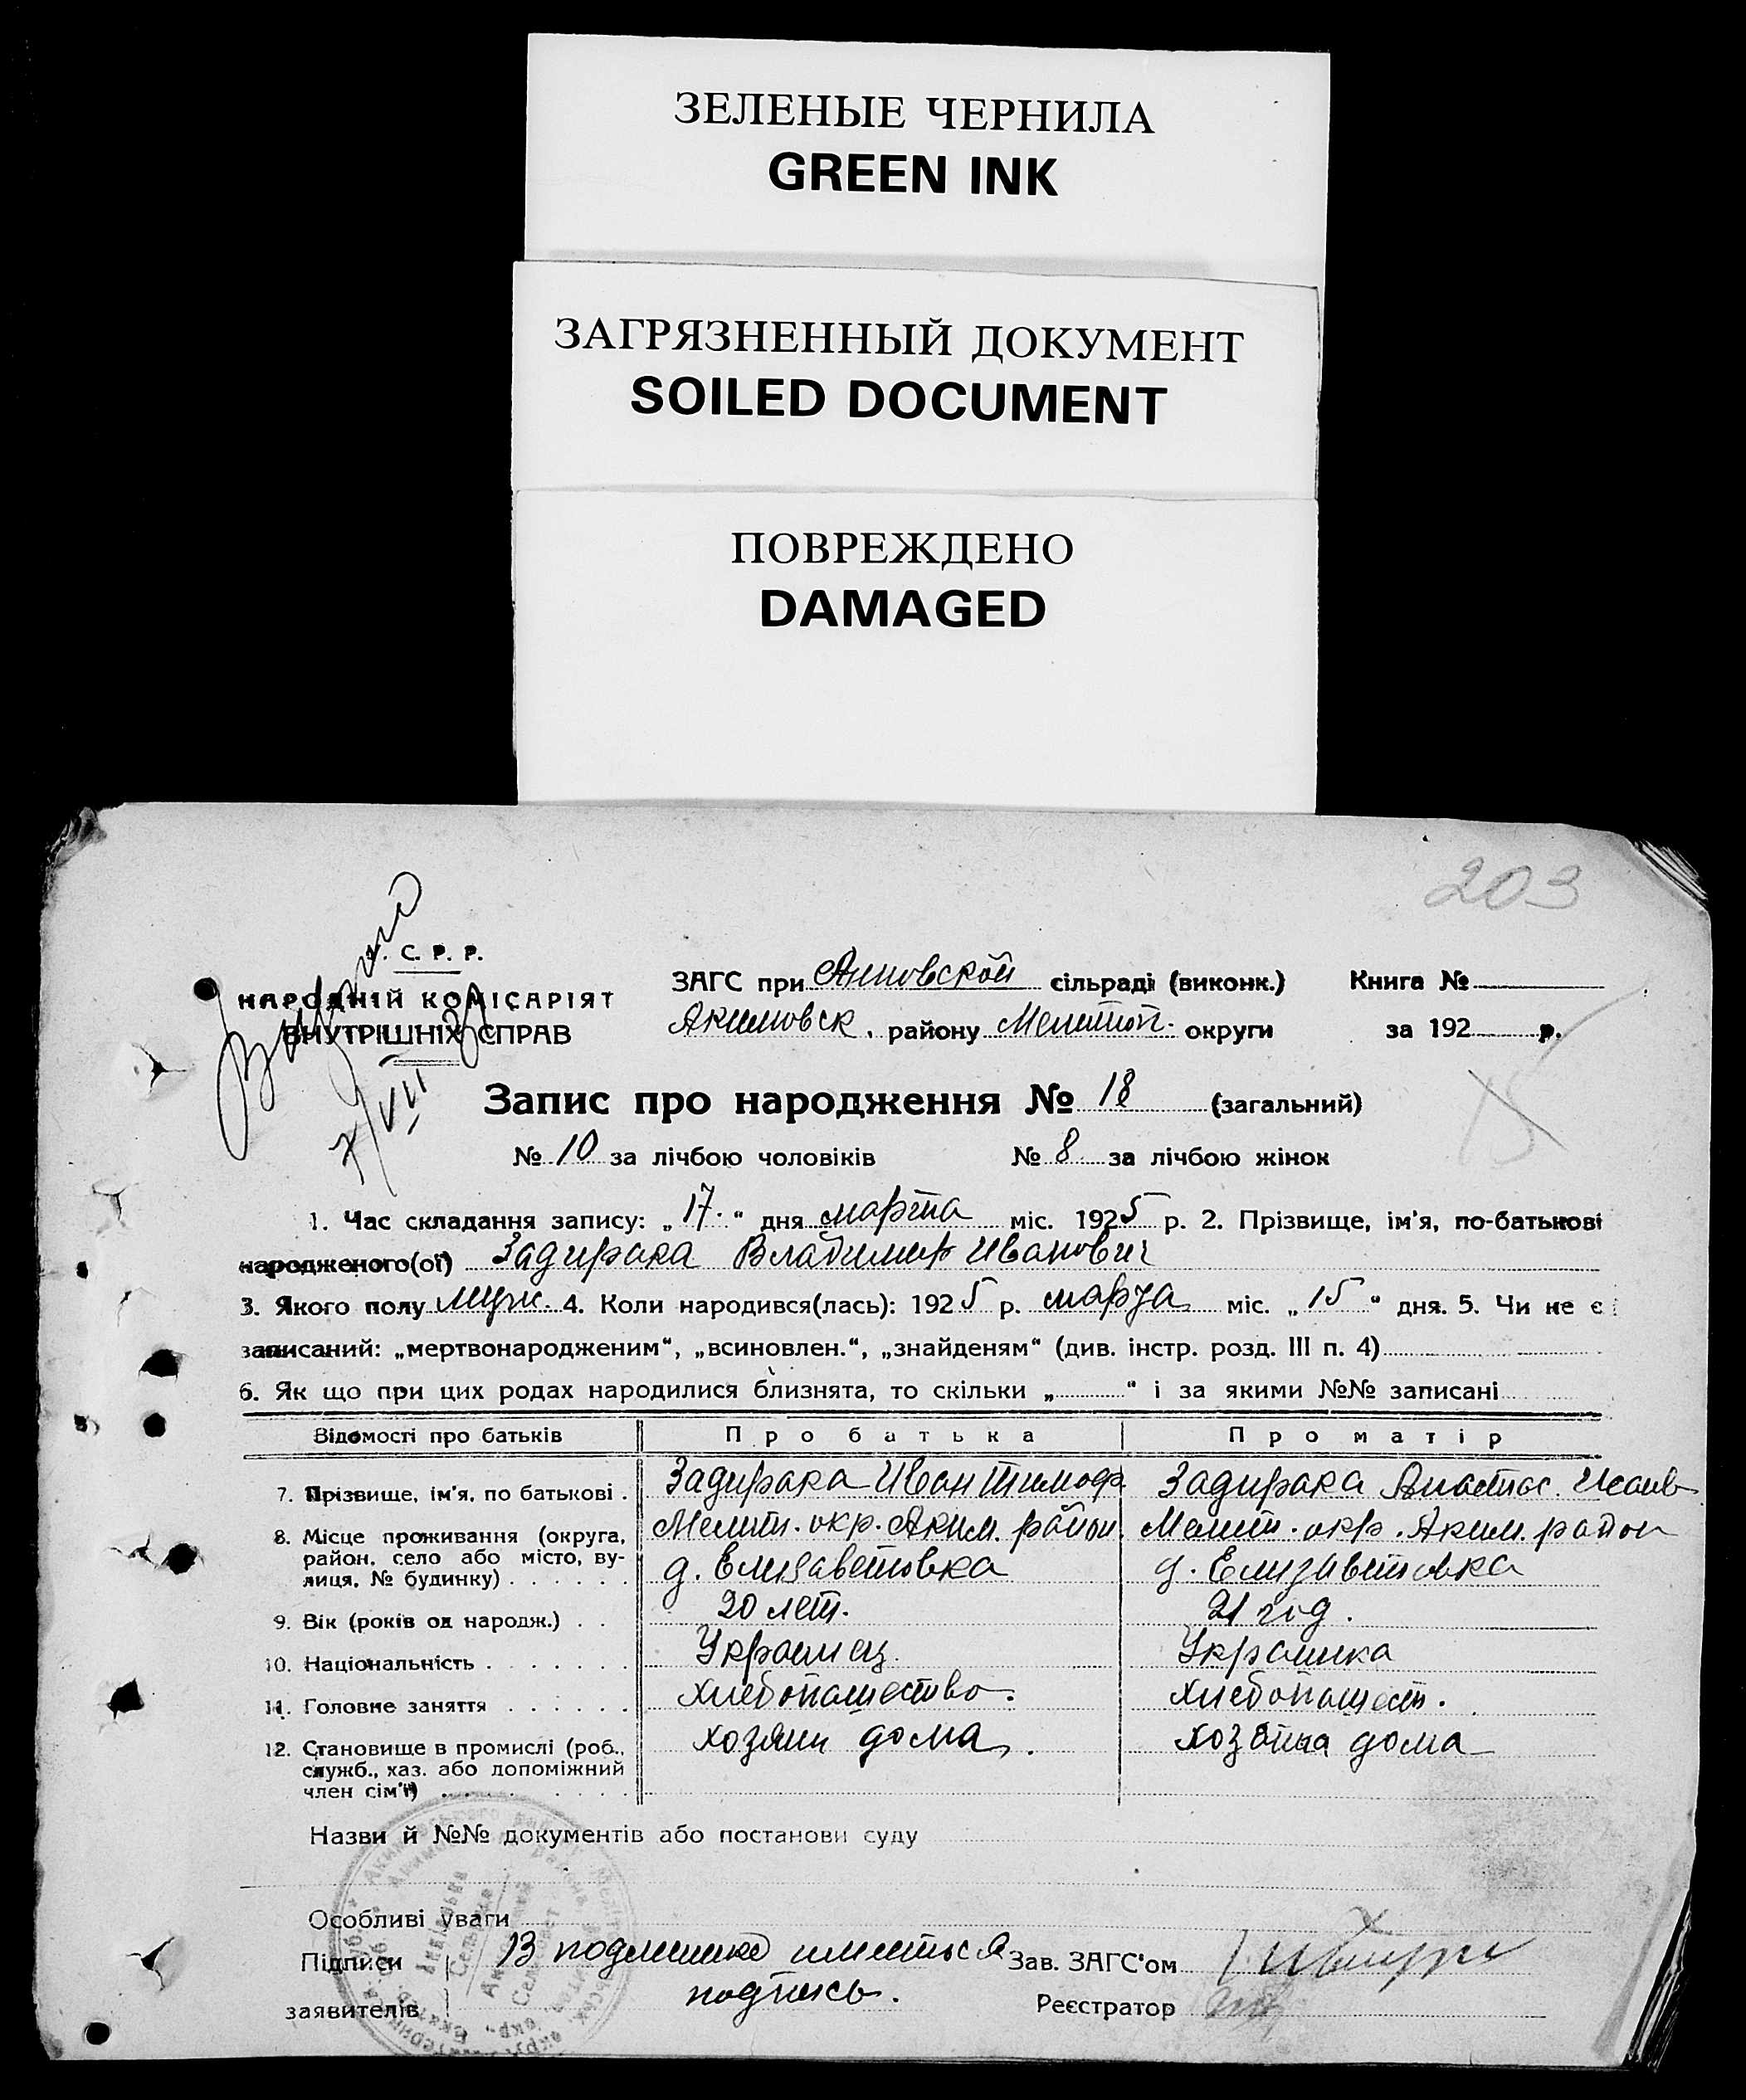 ЗЕЛЕНЫЕ ЧЕРНИЛА
GREEN INK
ЗАГРЯЗНЕННЫЙ ДОКУМЕНТ
SOILED DOCUMENT
ПОВРЕЖДЕНО
DAMAGED
203
С. Р. Р.
НАРОДНІЙ КОМІСАРІЯТ
ВНУТРІШНІХ СПРАВ
7/VII
ЗАГС при Анновской сільраді (виконк.) Книга №
Акимовск. району Мелитоп. округи за 192 р.
Запис про народження № 18 (загальний)
№ 10 за лічбою чоловіків № 8 за лічбою жінок
1. Час складання запису: „17." дня марта міс. 1925 р. 2. Прізвище, ім'я, по-батькові
народженого(ої) Задирака Владимир Иванович
3. Якого полу муж. 4. Коли народився(лась): 1925 р. марта міс. „15" дня. 5. Чи не є
записаний: „мертвонародженим", „всиновлен.", „знайденям" (див. інстр. розд. III п. 4)
6. Як що при цих родах народилися близнята, то скільки „ " і за якими №№ записані
Відомості про батьків Про батька Про матір
7. Прізвище, ім'я, по батькові . Задирака Иван Тимоф Задирака Анастас. Исаив
8. Місце проживання (округа, район, село або місто, вулиця, № будинку) . . . . . . Мелит. окр. Аким. район. Мелит. окр. Аким. район
д. Елизаветовка д. Елизаветовка
9. Вік (років од народж.) . . 20 лет. 21 год.
10. Національність . . . . . . . Украинец. Украинка
11. Головне заняття . . . . . . Хлебопашество. Хлебопашест.
12. Становище в промислі (роб., служб., хаз. або допоміжний член сім'ї) хозяин дома. хозяйка дома
Назви й №№ документів або постанови суду
Особливі уваги
Підписи В подлинике иметься Зав. ЗАГС'ом
заявителів подпись. Реєстратор